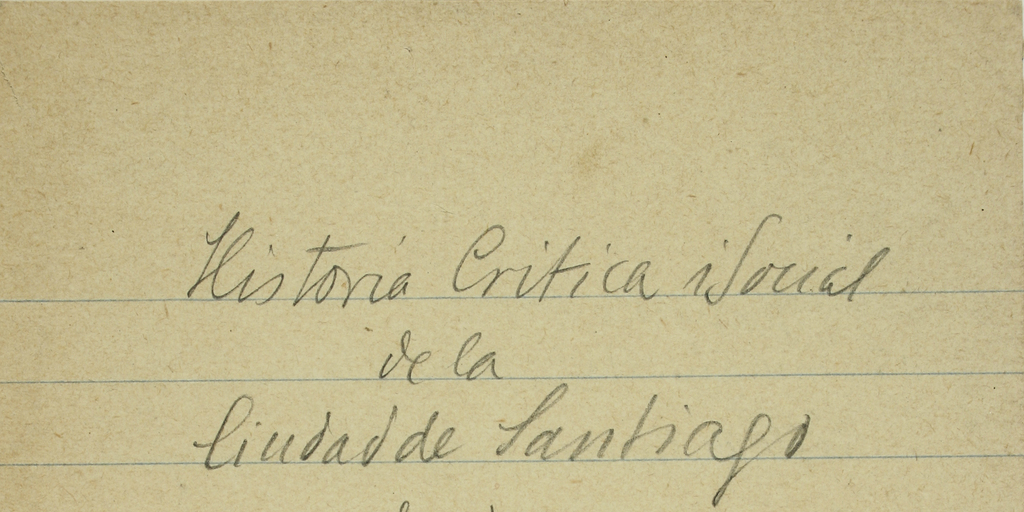 Historia Critica i Social
de la
Ciudad de Santiago